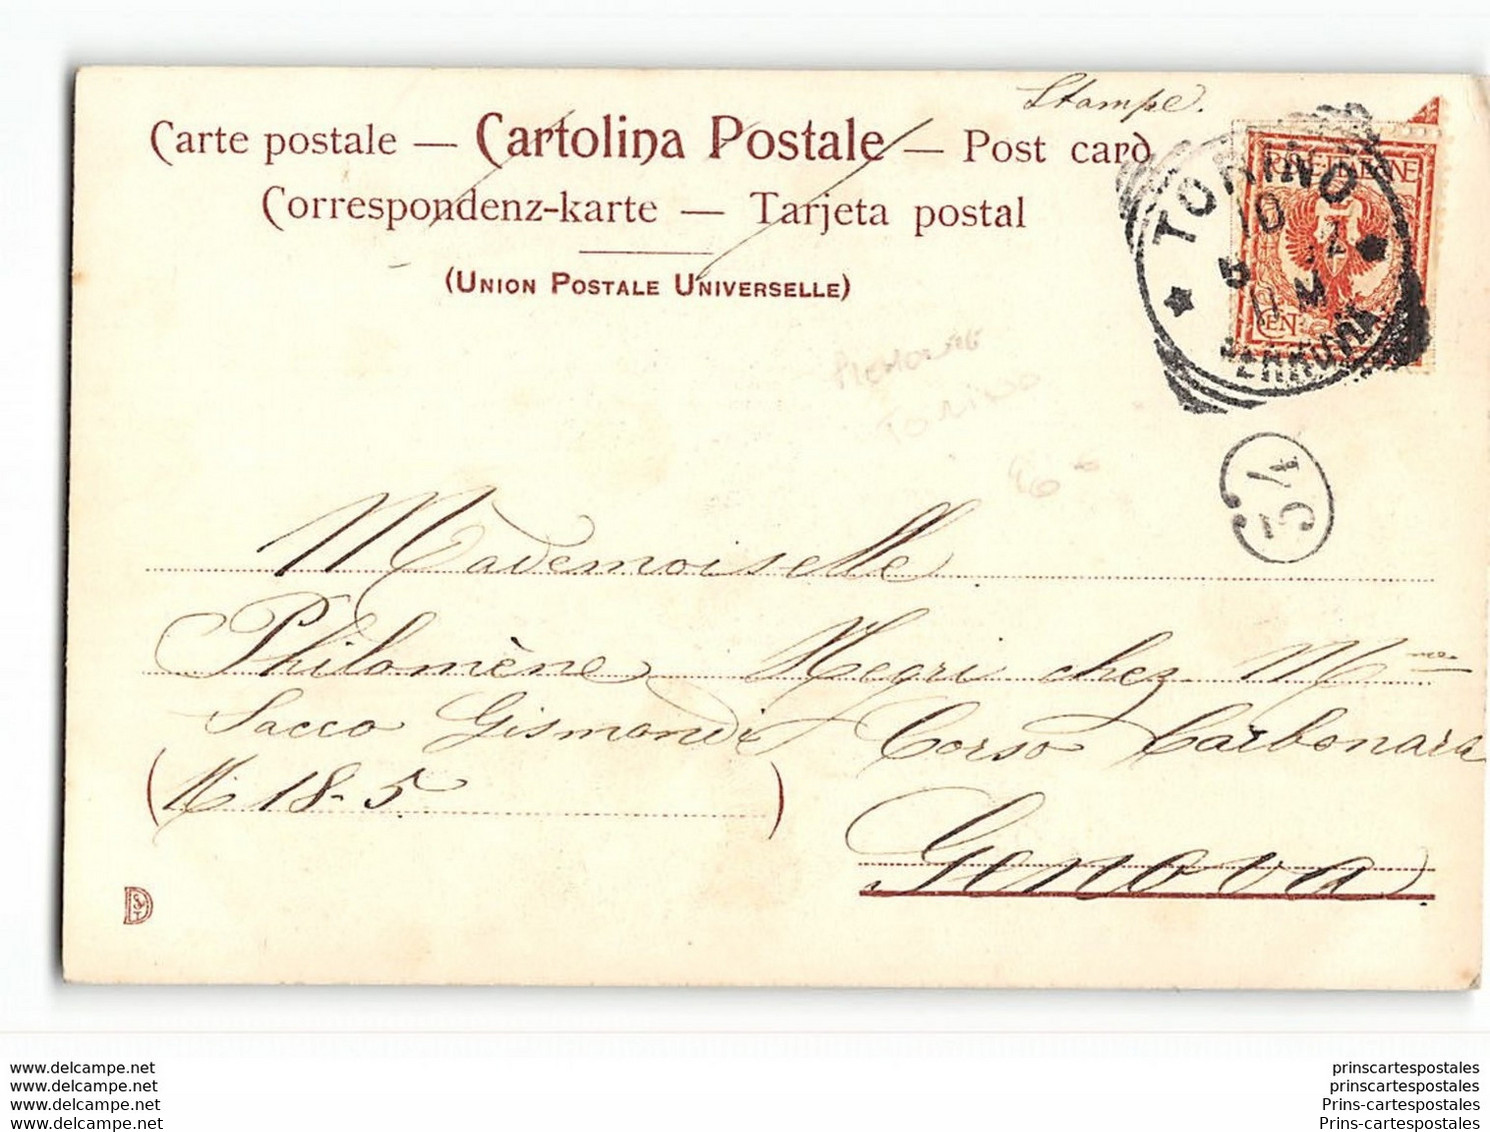 Stampe.
Carte postale — Cartolina Postale — Post card
Correspondenz-karte — Tarjeta postal
(UNION POSTALE UNIVERSELLE)
TORINO
10
5
11 M
FERROVIA
CEN:
Piemonte
Torino
54
Mademoiselle
Philomène Negri chez Mme
Sacco Gismondi Corso Carbonara
(N 18-5)
Genova
www.delcampe.net
www.delcampe.net
www.delcampe.net
www.delcampe.net
prinscartespostales
prinscartespostales
Prins-cartespostales
Prins-cartespostales